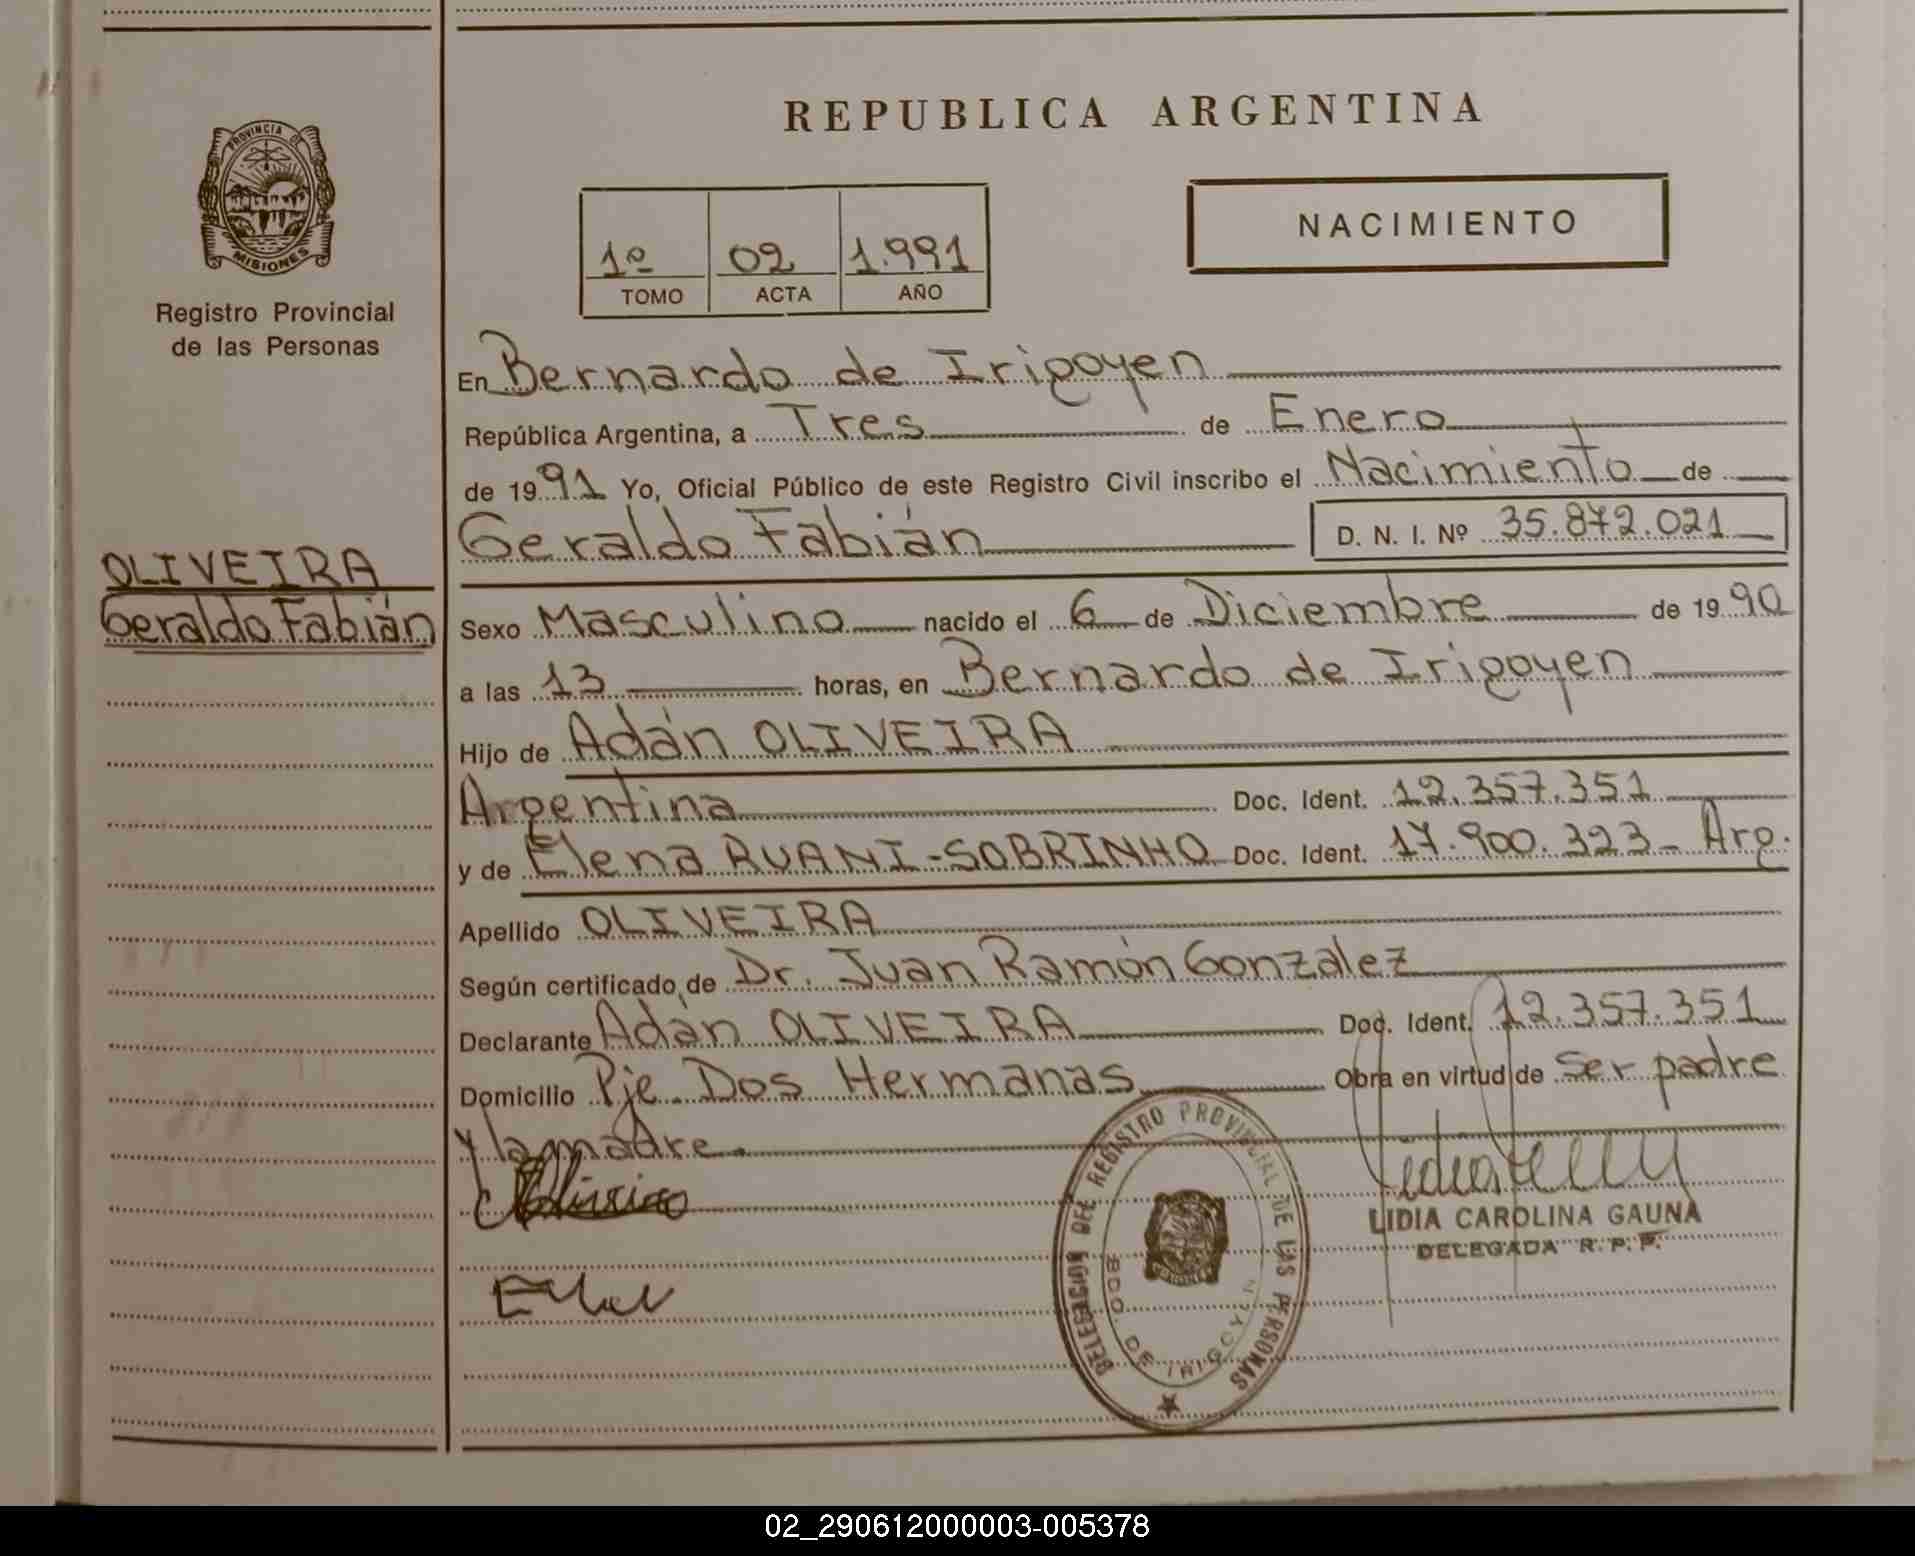 REPUBLICA ARGENTINA
PROVINCIA DE MISIONES
Registro Provincial
de las Personas
1º 02 1.991
TOMO ACTA AÑO
NACIMIENTO
En Bernardo de Irigoyen
República Argentina, a Tres de Enero
de 1991 Yo, Oficial Público de este Registro Civil inscribo el Nacimiento de
Geraldo Fabián D. N. I. Nº 35.872.021
OLIVEIRA
Geraldo Fabián
Sexo Masculino nacido el 6 de Diciembre de 1990
a las 13 horas, en Bernardo de Irigoyen
Hijo de Adán OLIVEIRA
Argentina Doc. Ident. 12.357.351
y de Elena RUANI-SOBRINHO Doc. Ident. 17.900.323- Arg.
Apellido OLIVEIRA
Según certificado de Dr. Juan Ramón González
Declarante Adán OLIVEIRA Doc. Ident. 12.357.351
Domicilio Pje. Dos Hermanas Obra en virtud de ser padre
y la madre.
DELEGACION DEL REGISTRO PROVINCIAL DE LAS PERSONAS
BDO. DE IRIGOYEN
MISIONES
LIDIA CAROLINA GAUNA
DELEGADA R. P. P.
02_290612000003-005378